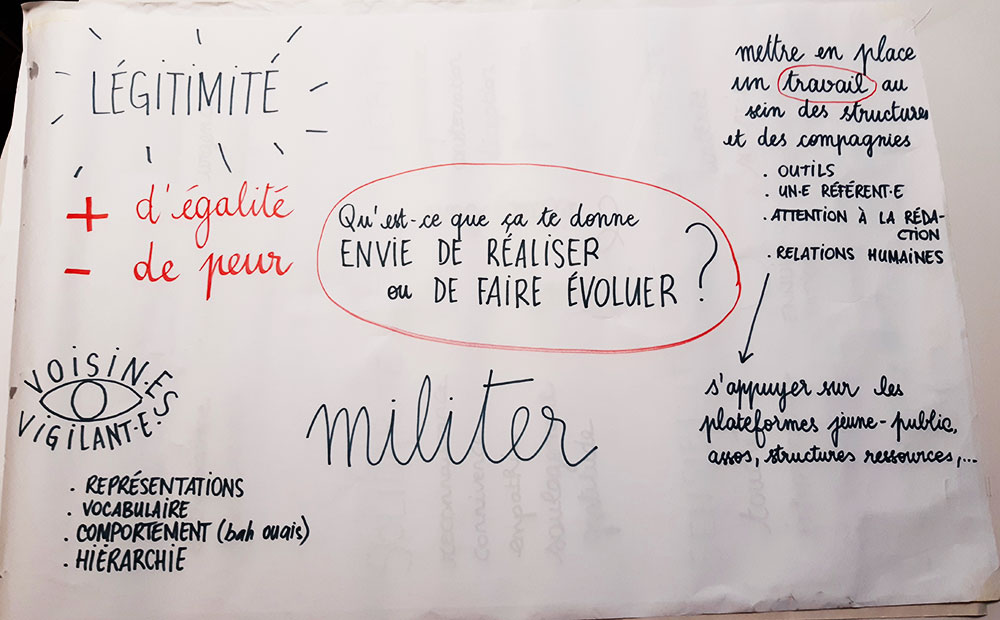 LÉGITIMITÉ
+ d'égalité
- de peur
Qu'est-ce que ça te donne
ENVIE DE RÉALISER
ou DE FAIRE ÉVOLUER ?
mettre en place
un travail au
sein des structures
et des compagnies
. OUTILS
. UN·E RÉFÉRENT·E
. ATTENTION À LA RÉDA-
CTION
. RELATIONS HUMAINES
s'appuyer sur les
plateformes jeune-public,
assos, structures ressources,...
militer
VOISIN·ES
VIGILANT·E·S
. REPRÉSENTATIONS
. VOCABULAIRE
. COMPORTEMENT (bah ouais)
. HIÉRARCHIE